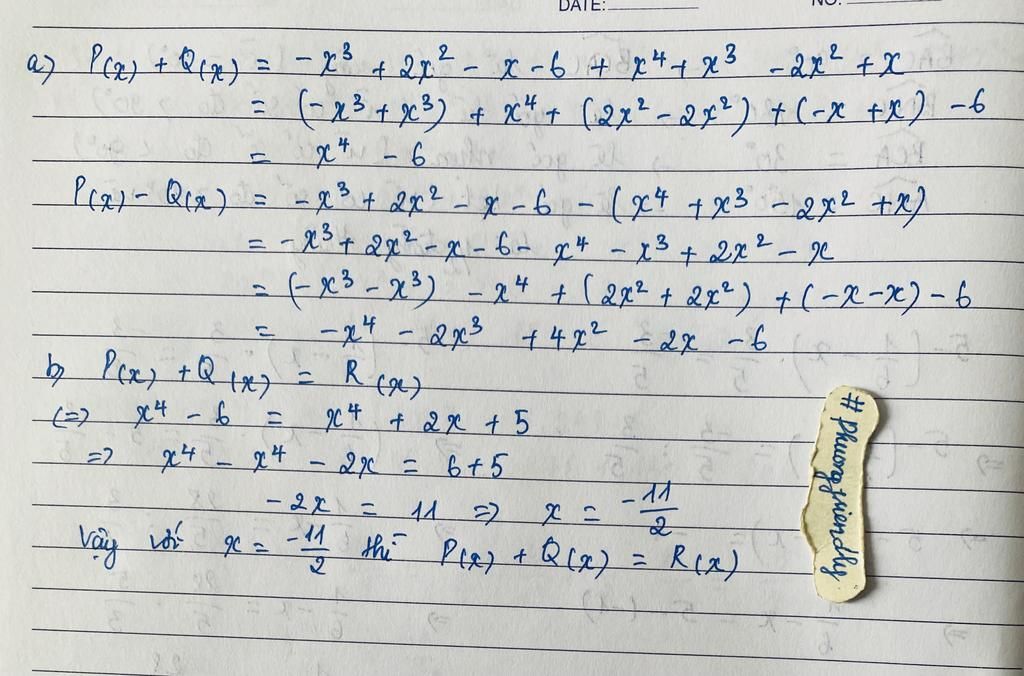 DATE: NO.
a) P(x) + Q(x) = -x³ + 2x² - x - 6 + x⁴ + x³ - 2x² + x
= (-x³ + x³) + x⁴ + (2x² - 2x²) + (-x + x) - 6
= x⁴ - 6
P(x) - Q(x) = -x³ + 2x² - x - 6 - (x⁴ + x³ - 2x² + x)
= -x³ + 2x² - x - 6 - x⁴ - x³ + 2x² - x
= (-x³ - x³) - x⁴ + (2x² + 2x²) + (-x - x) - 6
= -x⁴ - 2x³ + 4x² - 2x - 6
b) P(x) + Q(x) = R(x)
(=) x⁴ - 6 = x⁴ + 2x + 5
=) x⁴ - x⁴ - 2x = 6 + 5
-2x = 11 =) x = -11/2
Vậy với x = -11/2 thì P(x) + Q(x) = R(x)
#phuongfriendly